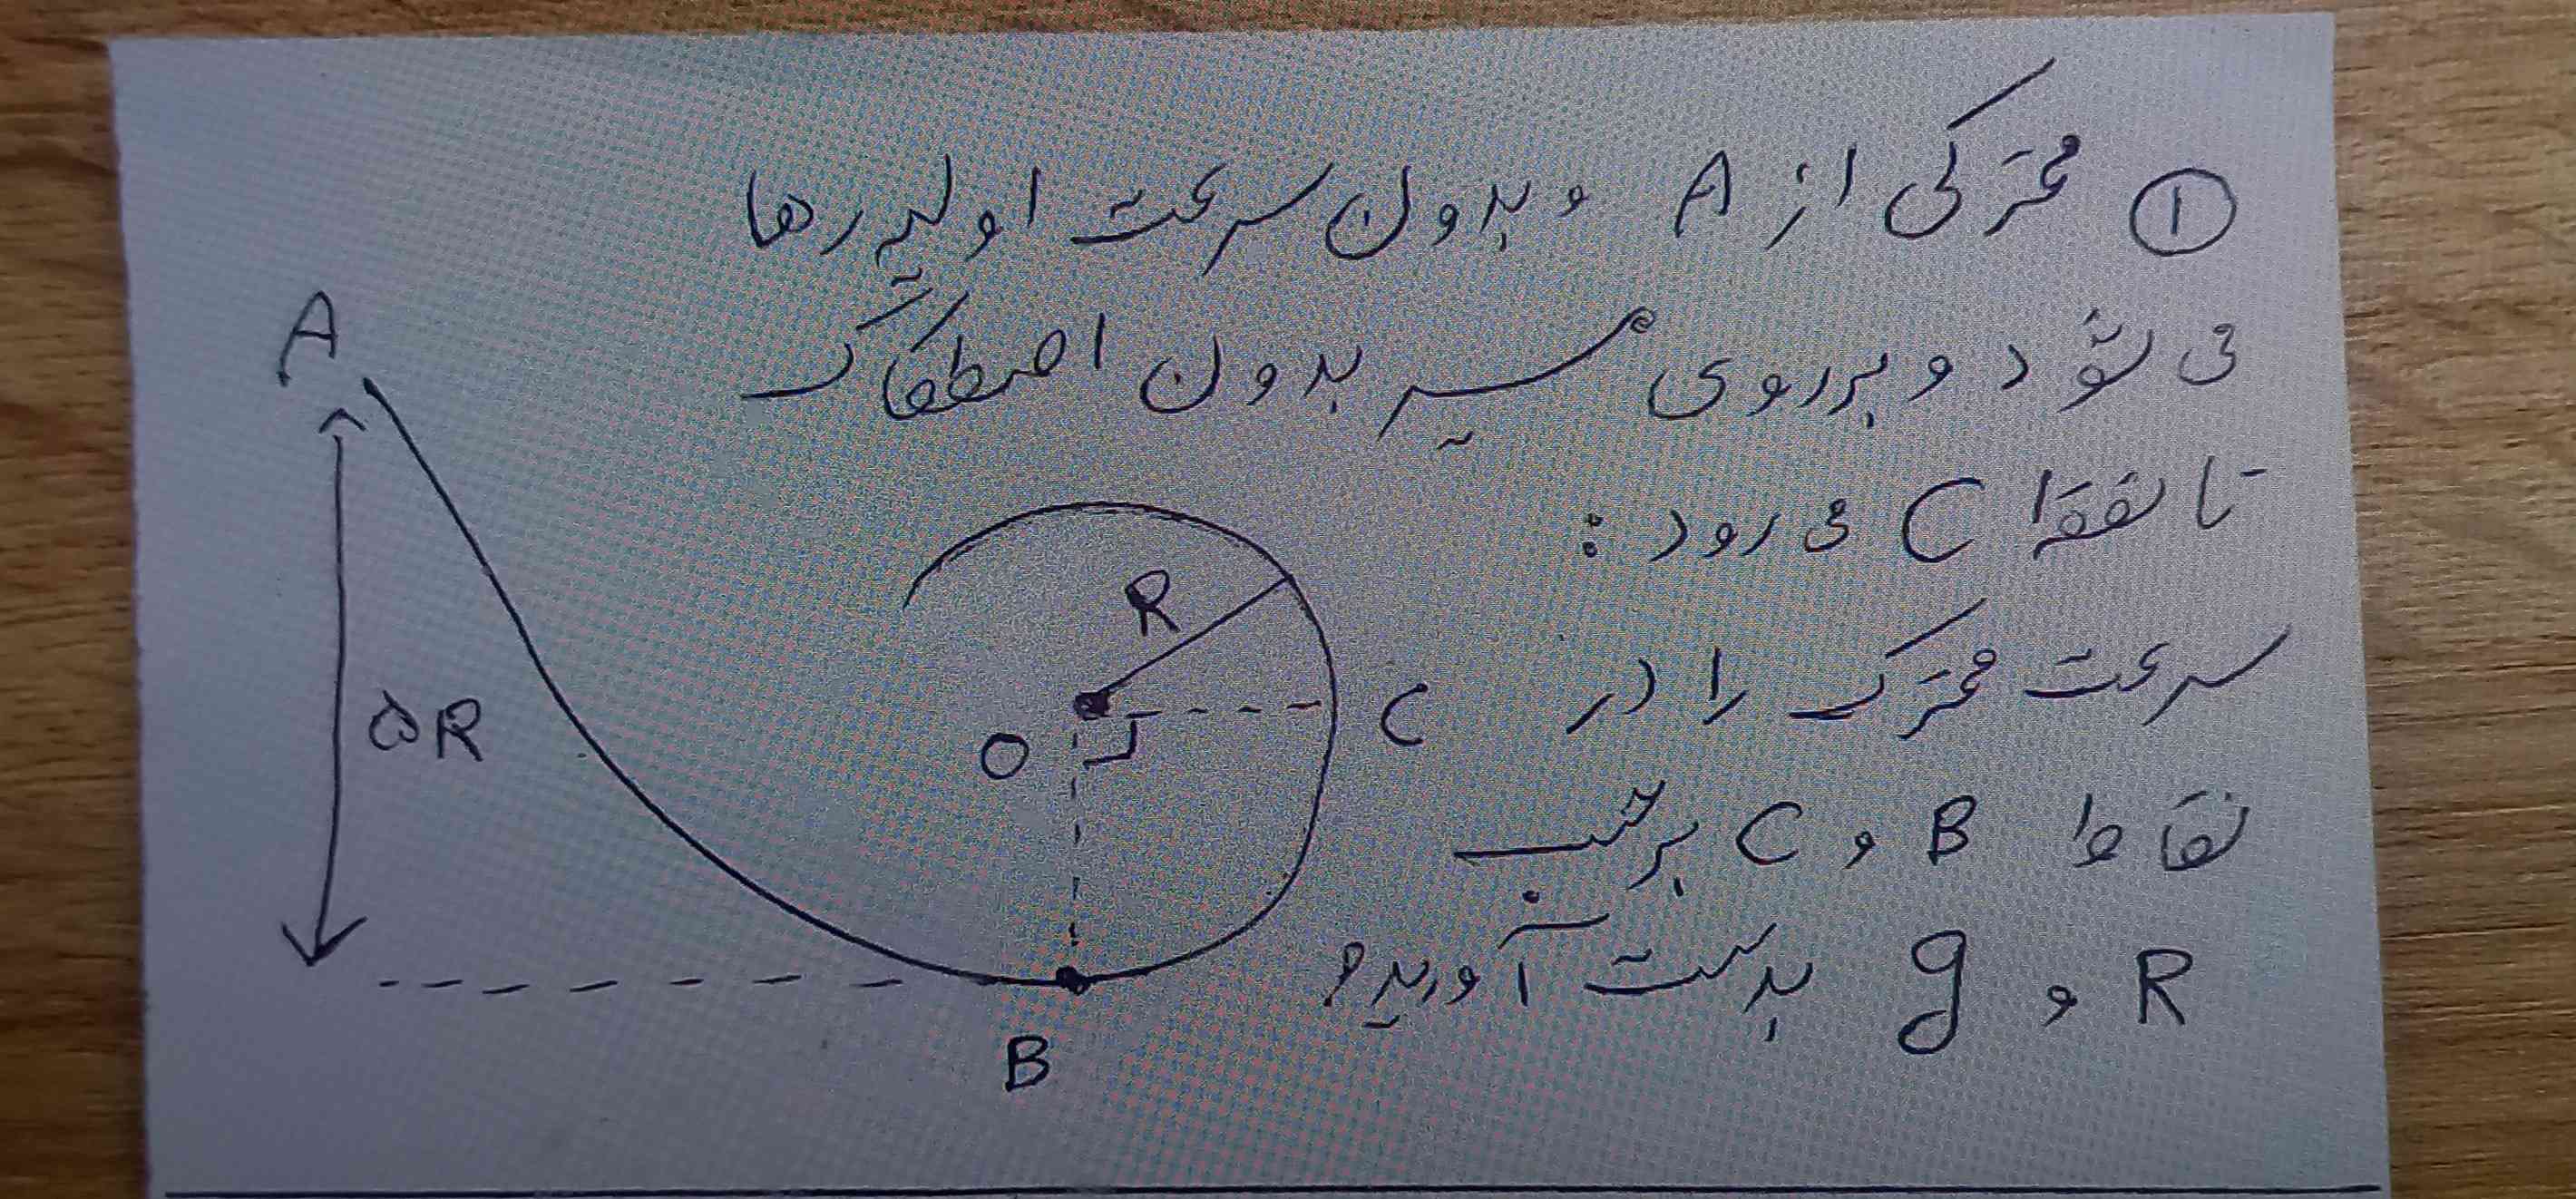 ① متحرکی از A و بدون سرعت اولیه رها
می شود و بر روی مسیر بدون اصطکاک
تا نقطه C می رود :
سرعت متحرک را در
نقاط B و C بر حسب
R و g بدست آورید؟
A
۵R
R
O
C
B